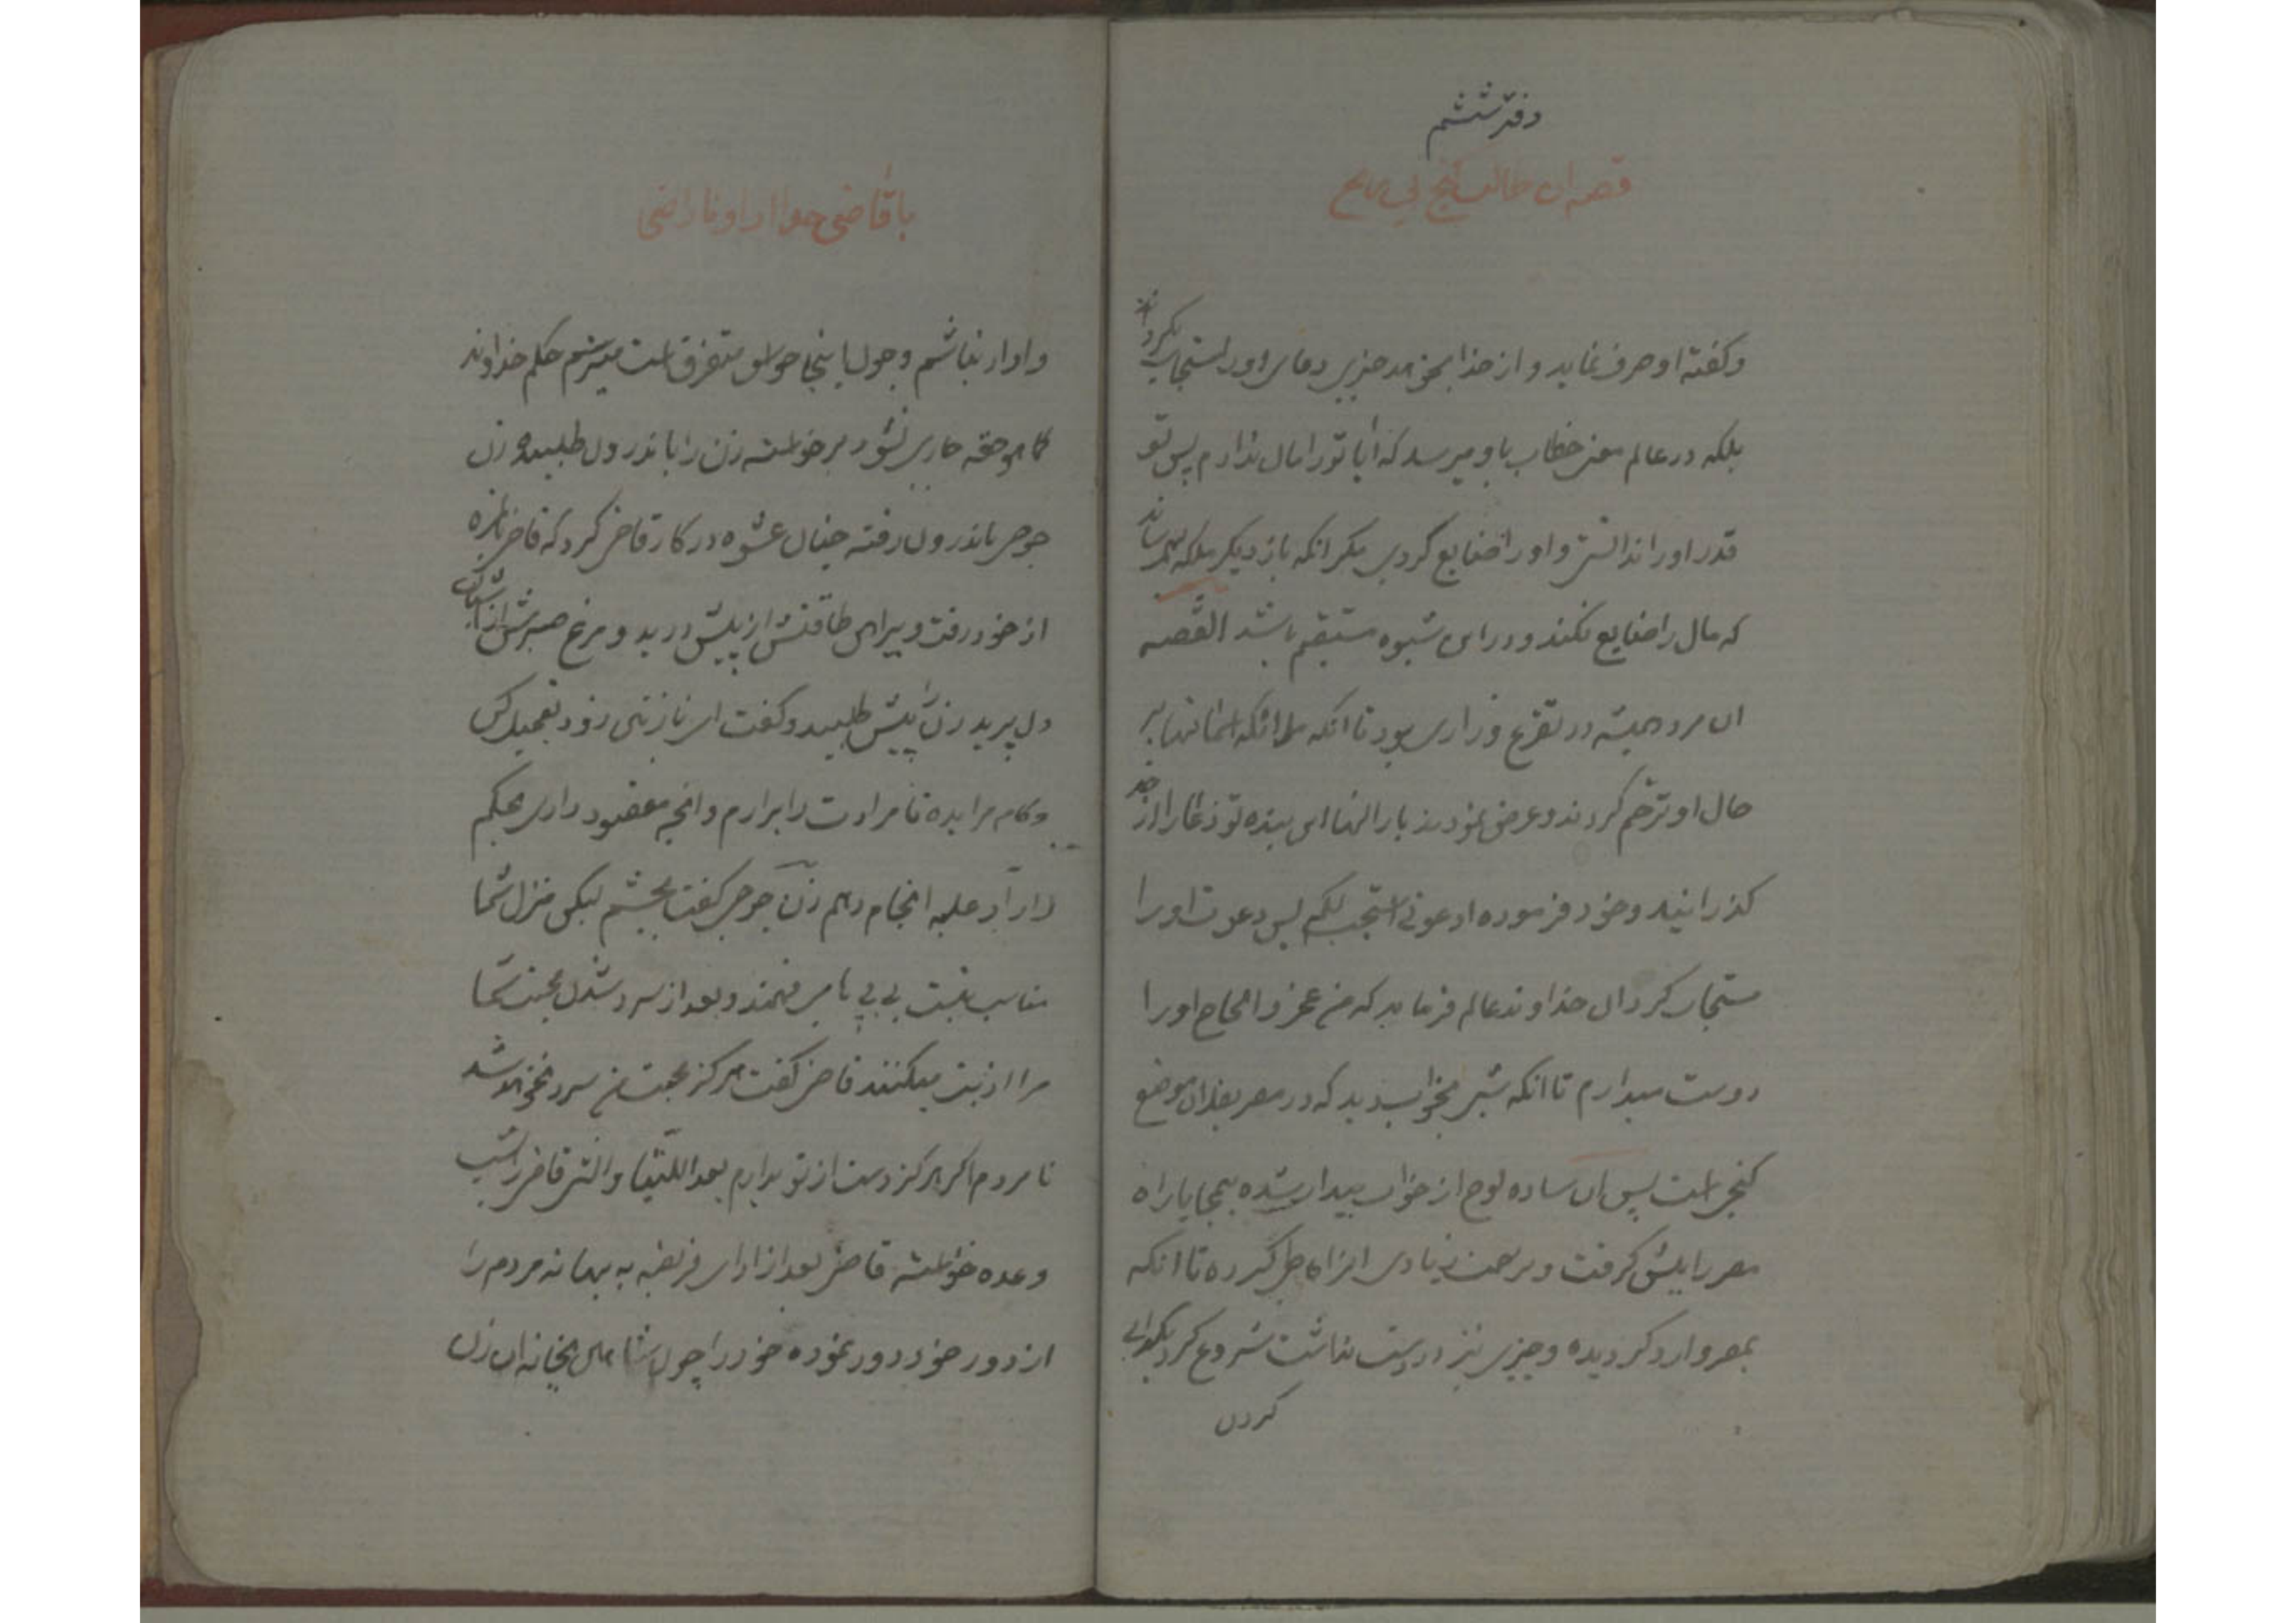 دفتر ششم
قصه ان طالب گنج بی رنج
وکفته او صرف نماید و از خدا بخواهد چیزی دعای او را مستجاب نکرداند
بلکه در عالم معنی خطاب باو میرسد که ایا تو را مال ندادم پس تو
قدر او را ندانستی و او را ضایع کردی مکر انکه باز دیکر ملکه بهم رساند
که مال را ضایع نکند و در این شیوه مستقیم باشد القصه
ان مرد همیشه در تضرع و زاری بود تا انکه ملائکه اسمانها بر
حال او ترحم کردند و عرض نمودند بار الها این بنده تو زاری را از حد
کذرانید و خود فرموده ادعونی استجب لکم پس دعوت او را
مستجاب کردان خداوند عالم فرماید که من عجز و الحاح او را
دوست میدارم تا انکه شبی بخواب دید که در مصر بفلان موضع
کنجی است پس ان ساده لوح از خواب بیدار شده بیمحابا راه
مصر را پیش کرفت و زحمت زیادی از راه حاصل کرده تا انکه
بمصر وارد کردیده و چیزی نیز در دست نداشت شروع کرد بکدایی
کردن
با قاضی جدا از او ناراضی
وادار نباشم و چون اینجا حواس متفرق است میترسم حکم خداوند
کما هو حقه جاری نشود برخواسته زن را باندرون طلبیده زن
جوحی باندرون رفته چنان عشوه در کار قاضی کرد که قاضی بیچاره
از خود رفت و پیراهن طاقتش از پیش درید و مرغ صبرش از اشیان
دل پرید زن را پیش طلبید و کفت ای نازنین زود تعجیل کن
و کام مرا بده تا مرادت را برارم و انچه مقصود داری بحکم
دار او علیه انجام دهم زن جوحی کفت بچشم لیکن منزل شما
مناسب نیست بی بی ما میفهمند و بعد از سرد شدن محبت شما
مرا اذیت میکنند قاضی کفت هرکز محبت من سرد نخواهد شد
نامردم اکر هرکز دست از تو بدارم بعد اللتیا والتی قاضی را شب
وعده خواسته قاضی بعد از ادای فریضه به بهانه مردم را
از دور خود دور نموده خود را چون شاهین بخانه ان زن